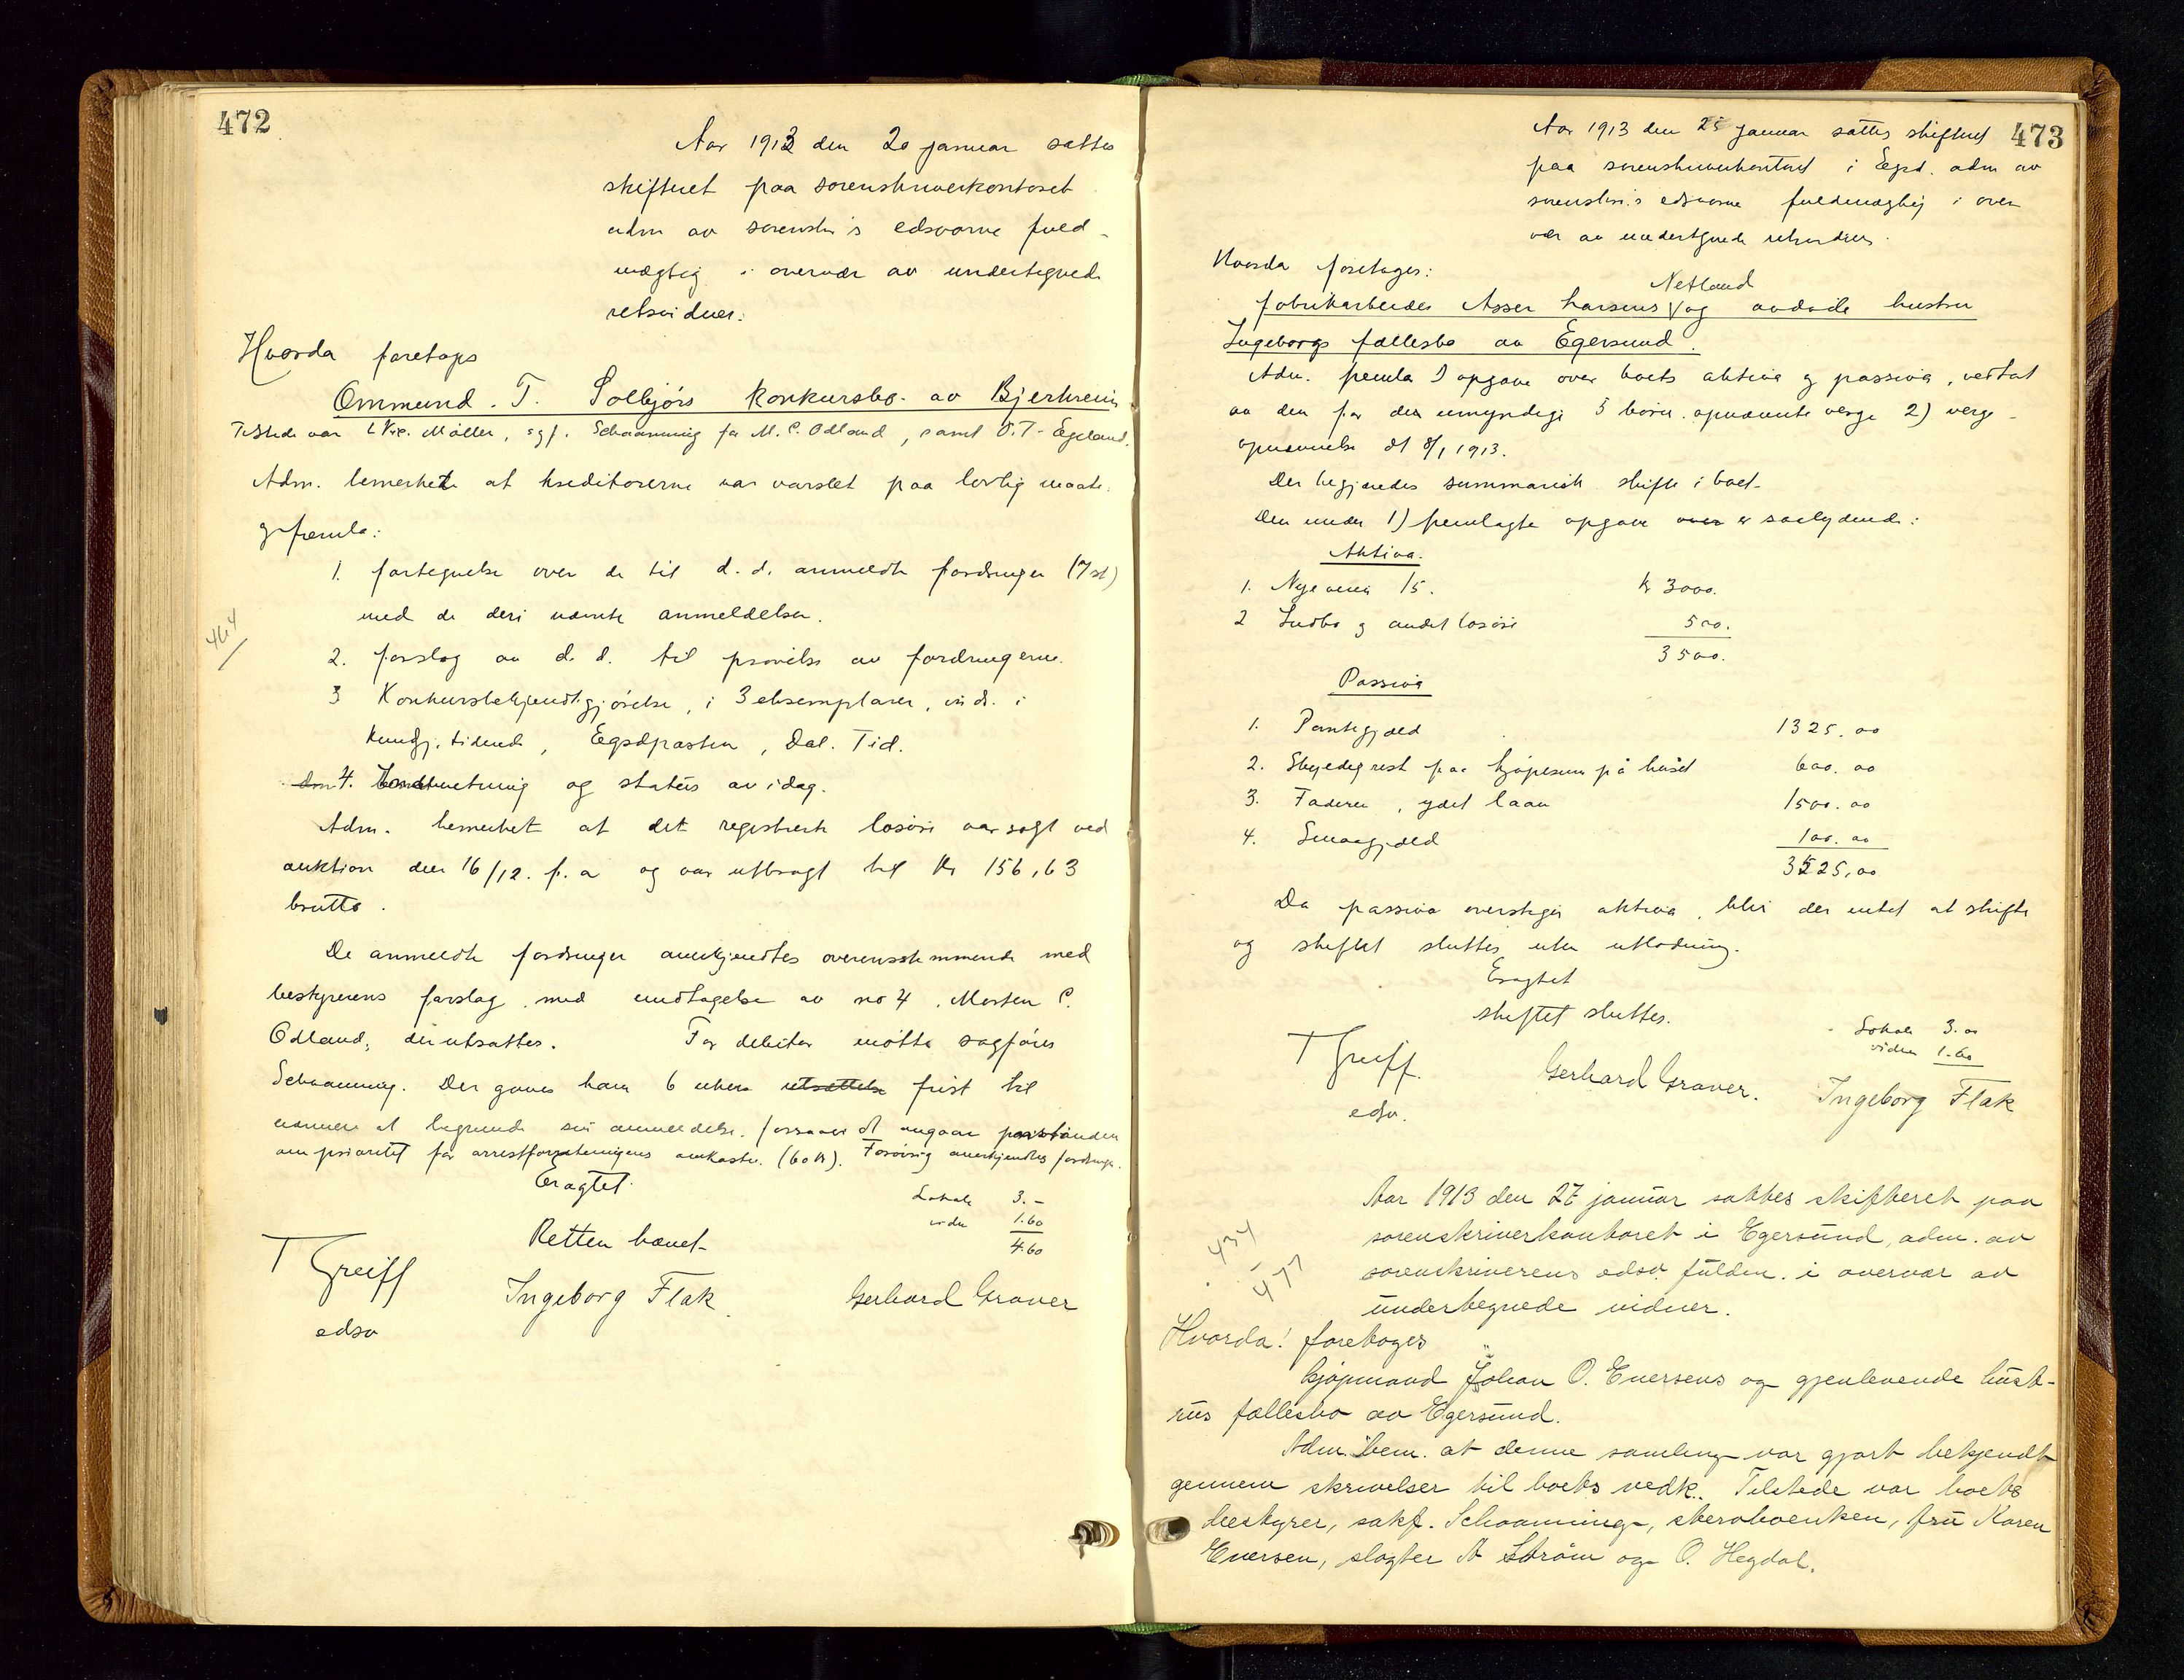 472
Aar 1913 den 20 januar sattes
skifteret paa sorenskriverkontoret
adm av sorenskr's edsvorne fuld-
mægtig i overvær av undertegnede
retsvidner.
Hvorda foretoges
Ommund T. Solbjørs konkursbo av Bjerkreim
Tilstede var Møller, sgf. Schaanning for M. C. Odland, samt O. T. Egeland.
Adm. bemerket at kreditorerne var varslet paa lovlig maate.
og fremla:
1. fortegnelse over de til d. d. anmeldte fordringer (7 st)
med de deri nævnte anmeldelser.
464
2. forslag av d. d. til prøvelse av fordringerne.
3 Konkursbekjendtgjørelse, i 3 eksemplarer, ind. i
kundgj. tidende, Egsdposten, Dal. Tid.
4. Bo indberetning og status av idag.
Adm. bemerket at det registrerte løsøre var solgt ved
auktion den 16/12. f. a og var utbragt til Kr 156,63
brutto.
De anmeldte fordringer anerkjendtes overensstemmende med
bestyrerens forslag, med undtagelse av no 4, Morten C.
Odland, der utsattes. For debitor møtte sagfører
Schaanning. Der gaves ham 6 ukers utsættelse frist til
nærmere at begrunde sin anmeldelse, forsaavidt angaar paastanden
om prioritet for arrestforretningens omkostn. (60 kr). Forøvrig anerkjendtes fordringen.
Eragtet
Retten hævet
Lokale 3.-
vidn 1.60
4.60
T Greiff
edsv
Ingeborg Flak
Gerhard Graver
473
Aar 1913 den 25 januar sattes skifteret
paa sorenskriverkontoret i Egsd. adm av
sorenskr.s edsvorne fuldmægtig i over
vær av undertegnede retsvidner.
Hvorda foretoges:
Netland
fabrikarbeider Asser Larsens V og avdøde hustru
Ingeborgs fællesbo av Egersund.
Adm. fremla 1) opgave over boets aktiva og passiva, vedtat
av den for de umyndige 5 børn opnævnte verge 2) verge-
opnævnelse dt 8/1 1913.
Der begjæredes summarisk skifte i boet.
Den under 1) fremlagte opgave over er saalydende:
Aktiva.
1. Nye veien 15. kr 3000.
2 Indbo og andet løsøre 500.
3500.
Passiva
1. Pantegjæld 1325.00
2. Skyldig rest paa kjøpesum på huset 600.00
3. Faderen, ydet laan 1500.00
4. Smaagjæld 100.00
3525,00
Da passiva overstiger aktiva, blir der intet at skifte
og skiftet sluttes uten utlodning.
Eragtet
skiftet sluttes.
Lokale 3.00
vidner 1.60
T Greiff.
edsv.
Gerhard Graver.
Ingeborg Flak
Aar 1913 den 27 januar sattes skifteret paa
sorenskriverkontoret i Egersund, adm. av
sorenskriverens edsv. fuldm. i overvær av
undertegnede vidner.
434
477
Hvorda! foretoges
kjøpmand Johan O. Eversens og gjenlevende hust-
rus fællesbo av Egersund.
Adm. bem. at denne samling var gjort bekjendt
gennem skrivelser til boets vedk.. Tilstede var boets
bestyrer, sakf. Schaanning, sterboenken, fru Karen
Eversen, slagter A Strøm og O. Hegdal.